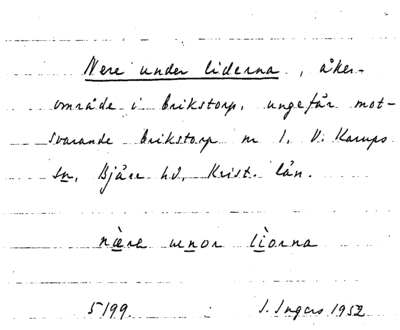 Nere under liderna, åker-
område i Erikstorp, ungefär mot-
svarande Erikstorp nr 1, V. Karups
sn, Bjäre hd, Krist. län.
nære uenor liorna
5199. I. Ingers 1952